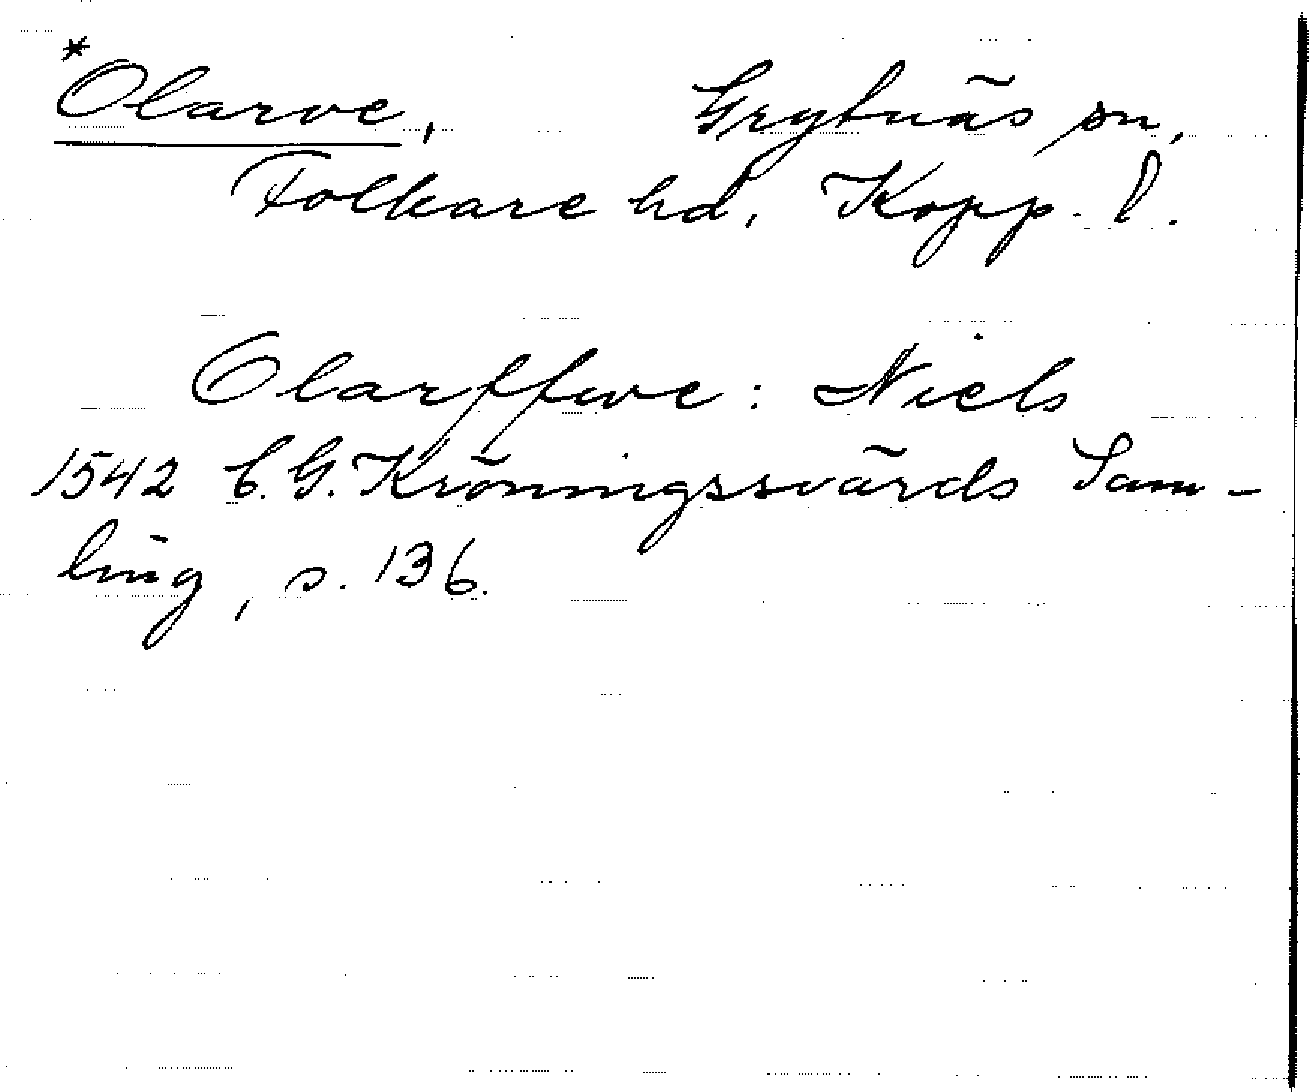 *Olarve, Grytnäs sn,
Folkare hd, Kopp. l.
Olarffwe: Niels
1542 C.G. Kröningssvärds Sam-
ling, s. 136.